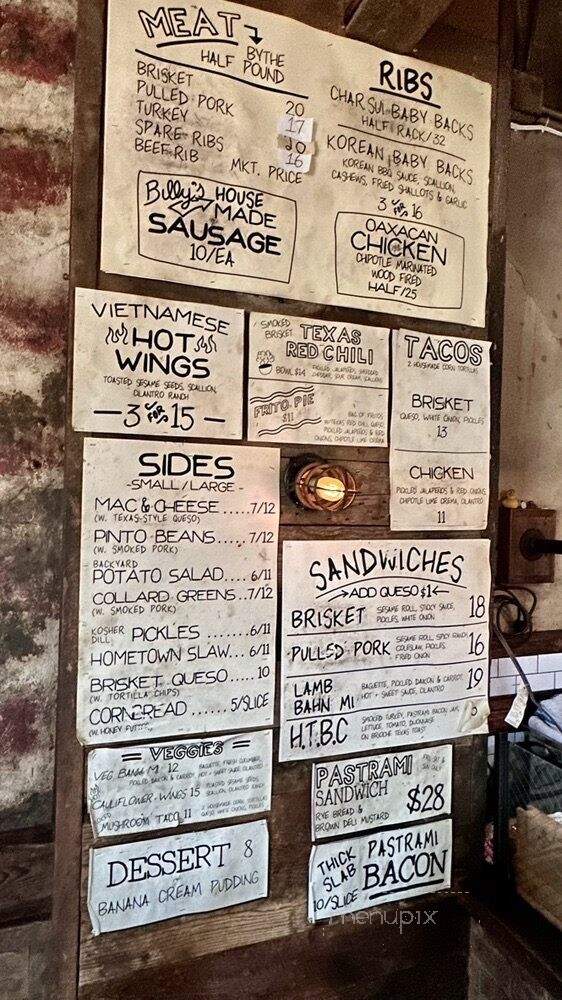 MEAT
BY THE
HALF POUND
BRISKET
PULLED PORK 20
TURKEY 17
SPARE RIBS 20
BEEF RIB 16
MKT. PRICE
Billy's HOUSE
MADE
SAUSAGE
10/EA
RIBS
CHAR SUI BABY BACKS
HALF RACK/32
KOREAN BABY BACKS
KOREAN BBQ SAUCE, SCALLION,
CASHEWS, FRIED SHALLOTS & GARLIC
3 FOR 16
OAXACAN
CHICKEN
CHIPOTLE MARINATED
WOOD FIRED
HALF/25
VIETNAMESE
HOT
WINGS
TOASTED SESAME SEEDS, SCALLION,
CILANTRO RANCH
3 FOR 15
SMOKED
BRISKET TEXAS
RED CHILI
BOWL $14 PICKLED JALAPEÑOS, SHREDDED
CHEDDAR, SOUR CREAM, SCALLIONS
FRITO PIE
$11
BAG OF FRITOS
W/TEXAS RED CHILI, QUESO,
PICKLED JALAPEÑOS & RED
ONIONS, CHIPOTLE LIME CREMA
TACOS
2 HOUSEMADE CORN TORTILLAS
BRISKET
QUESO, WHITE ONION, PICKLES
13
CHICKEN
PICKLED JALAPEÑOS & RED ONIONS,
CHIPOTLE LIME CREMA, CILANTRO
11
SIDES
-SMALL/LARGE-
MAC & CHEESE.....7/12
(W. TEXAS-STYLE QUESO)
PINTO BEANS.....7/12
(W. SMOKED PORK)
BACKYARD
POTATO SALAD....6/11
COLLARD GREENS..7/12
(W. SMOKED PORK)
KOSHER
DILL PICKLES .......6/11
HOMETOWN SLAW...6/11
BRISKET QUESO.....10
(W. TORTILLA CHIPS)
CORNBREAD......5/SLICE
(W. HONEY
SANDWICHES
ADD QUESO $1
BRISKET SESAME ROLL, STICKY SAUCE,
PICKLES, WHITE ONION 18
PULLED PORK SESAME ROLL, SPICY
COLESLAW, PICKLES,
FRIED ONION 16
LAMB
BAHN MI BAGUETTE, PICKLED DAIKON & CARROT,
HOT + SWEET SAUCE, CILANTRO 19
H.T.B.C SMOKED TURKEY, PASTRAMI BACON JAM,
LETTUCE, TOMATO, DUONNAISE
ON BRIOCHE TEXAS TOAST
= VEGGIES =
VEG BAHN MI 12 BAGUETTE, FRESH CUCUMBER,
PICKLED DAIKON & CARROT, HOT + SWEET SAUCE, CILANTRO
CAULIFLOWER WINGS 15 TOASTED SESAME SEEDS,
SCALLION, CILANTRO RANCH
MUSHROOM TACO 11 2 HOUSEMADE CORN TORTILLAS
QUESO, WHITE ONIONS, PICKLES
PASTRAMI
SANDWICH
RYE BREAD &
BROWN DELI MUSTARD
$28
DESSERT 8
BANANA CREAM PUDDING
THICK
SLAB PASTRAMI
BACON
10/SLICE
menupix